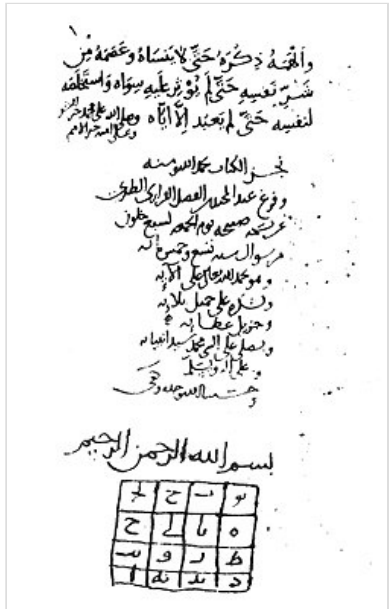 وألهمه ذكره حتى لا ينساه وعصمه من
شر نفسه حتى لم يؤثر عليه سواه واستخلصه
لنفسه حتى لم يعبد إلا اياه وصلى الله على محمد خير
وعلى اله خير الامم
نجز الكتاب بحمد الله ومنه
وفرغ عبد المجيد بن الفضل الفراري الطبري
صبيحه يوم الجمعه لسبع خلون
من شوال سنه تسع وخمس مائه
وهو يحمد الله تعالى على الآئه
ويشكره على جميل بلائه
وجزيل عطائه
ويصلي على النبي محمد سيد انبيائه
وعلى اله ويسلم
حسبنا الله وحده وكفى
بسم الله الرحمن الرحيم
يو ب ج يج
ه يا ي ح
ط ز و يب
د يد يه ا